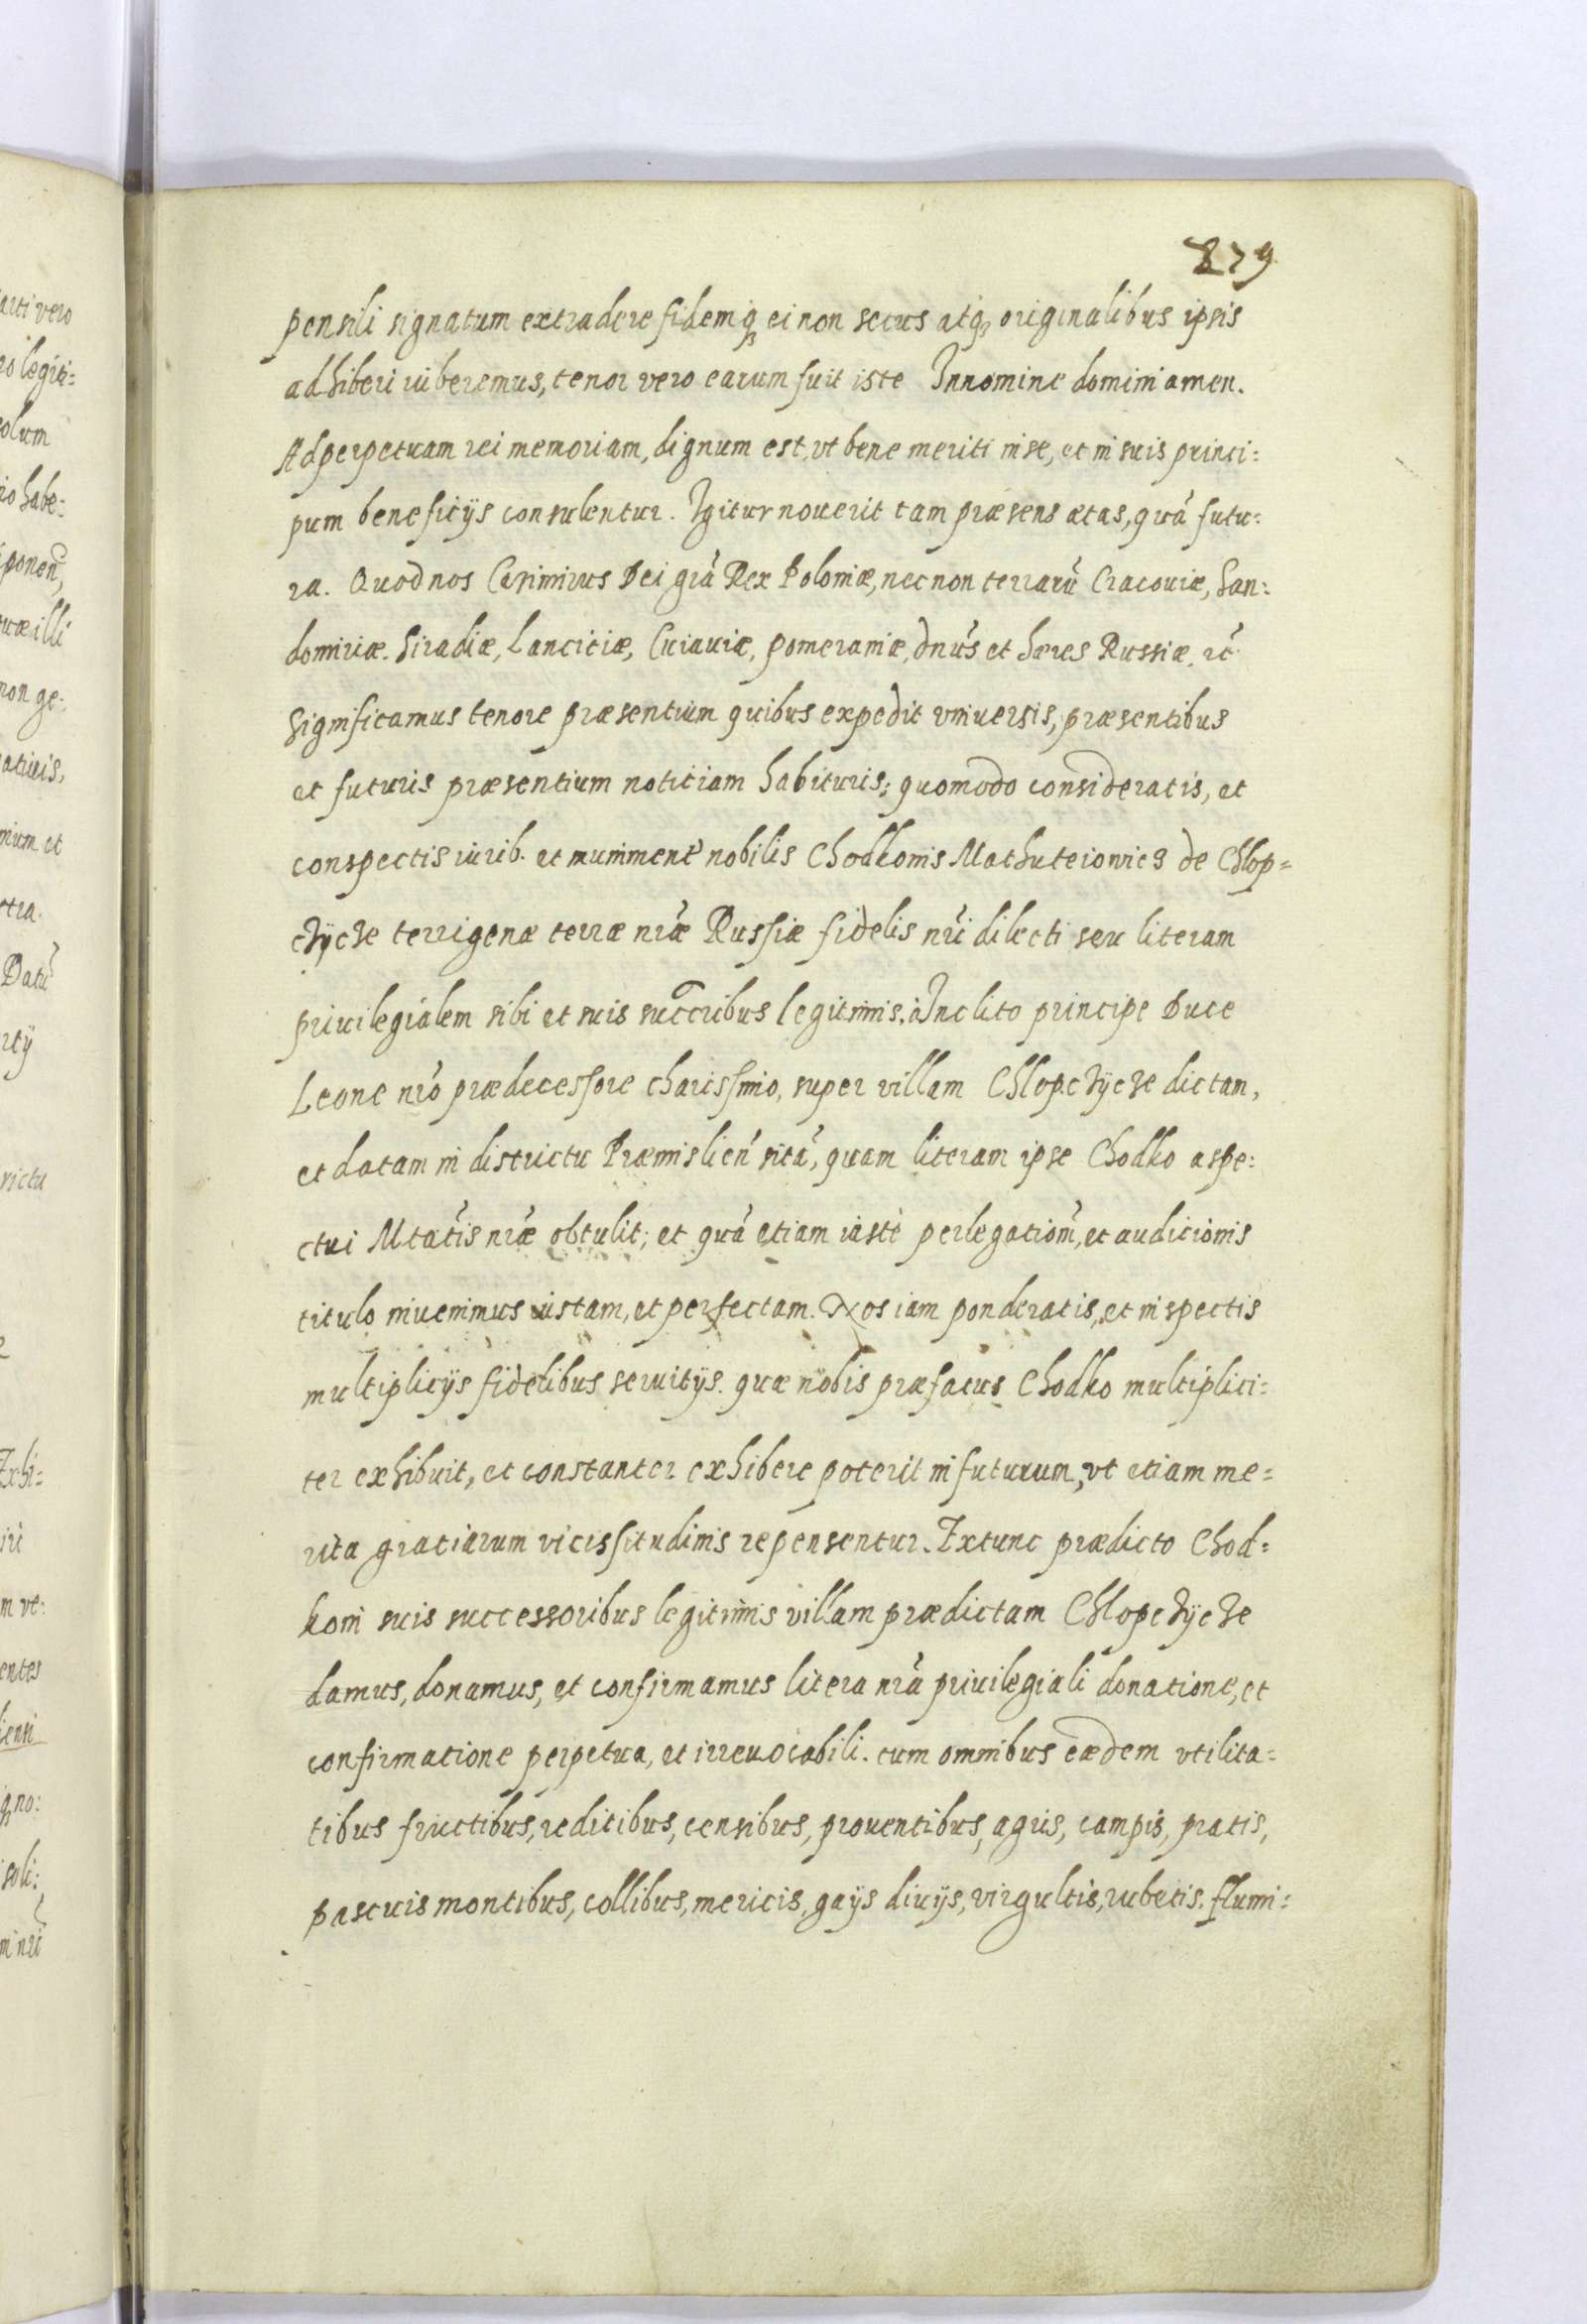 279
pensili signatum extradere fidemq₃ ei non secus atq₃ originalibus ipsis
adhiberi iuberemus, tenor vero earum fuit iste Innomine domini amen.
Adperpetuam rei memoriam, dignum est, vt bene meriti in se, et in suis princi:
pum beneficijs consulentur. Igitur nouerit tam præsens ætas, quā futu:
ra. Quod nos Casimirus Dei grã Rex Poloniæ, necnon terrarũ Cracouiæ, San:
domiriæ. Siradiæ, Lanciciæ, Cuiauiæ, Pomeraniæ, dnũs et hæres Russiæ. rc̃
Significamus tenore præsentium quibus expedit vniuersis, præsentibus
et futuris præsentium noticiam habituris: quomodo consideratis, et
conspectis iurib. et muniment̃ nobilis Chodkonis Mathuteiowicz de Chlop=
czÿcze terrigenæ terræ nr̃æ Russiæ fidelis nr̃i dilecti seu literam
priuilegialem sibi et suis succribus legitimis. à Inclito principe Duce
Leone nr̃o prædecessore charissimo, super villam Chlopczÿcze dictam,
et datam in districtu Præmislien̄ sitā, quam literam ipse Chodko aspe:
ctui Mtātis nr̃æ obtulit; et quā etiam iustè perlegation̄, et audicionis
titulo inuenimus iustam, et perfectam. Nos iam ponderatis, et inspectis
multiplicijs fidelibus seruitijs. quæ nobis præfatus Chodko multiplici:
ter exhibuit, et constanter exhibere poterit in futurum, vt etiam me=
rita gratiarum vicissitudinis repensentur. Extunc prædicto Chod=
koni suis successoribus legitimis villam prædictam Chlopczÿcze
damus, donamus, et confirmamus litera nr̃a priuilegiali donatione, et
confirmatione perpetua, et irreuocabili. cum omnibus eædem vtilita=
tibus fructibus, reditibus, censibus, prouentibus, agris, campis, pratis,
pascuis montibus, collibus, mericis, gaijs diuijs, virgultis, rubetis. flumi: